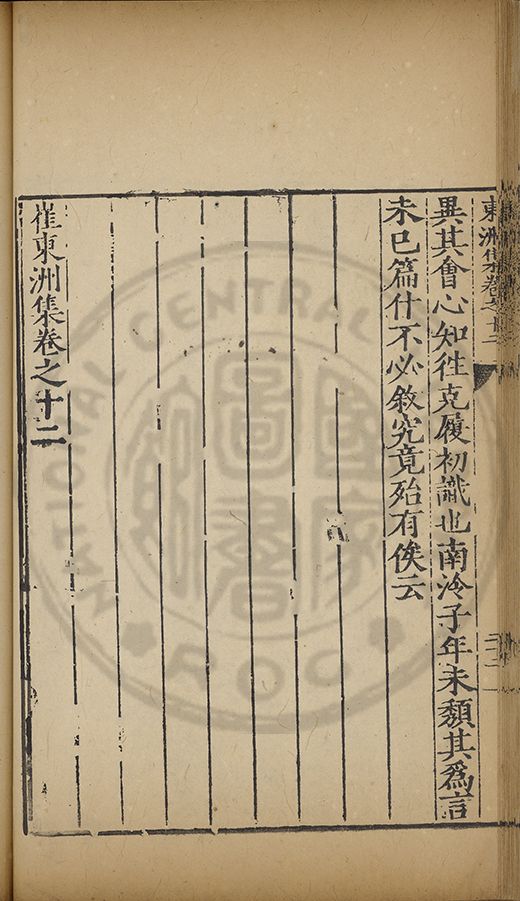 東洲集卷之十二
異其會心知徃克履初識也南泠子年未頽其爲言
未巳篇什不必敘究竟殆有俟云
崔東洲集卷之十二
NATIONAL CENTRAL
ROC